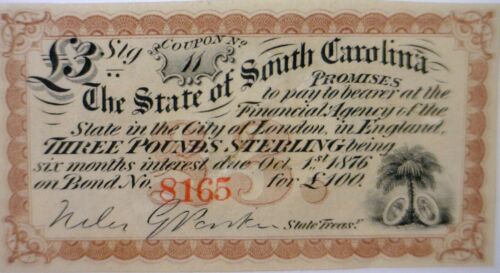 £3 Stg
COUPON No
11
The State of South Carolina
PROMISES
to pay to bearer at the
Financial Agency of the
State in the City of London, in England,
THREE POUNDS STERLING being
six months interest due Oct. 1st 1876
on Bond No. 8165 for £100.
Niles G Parker State Treasr.